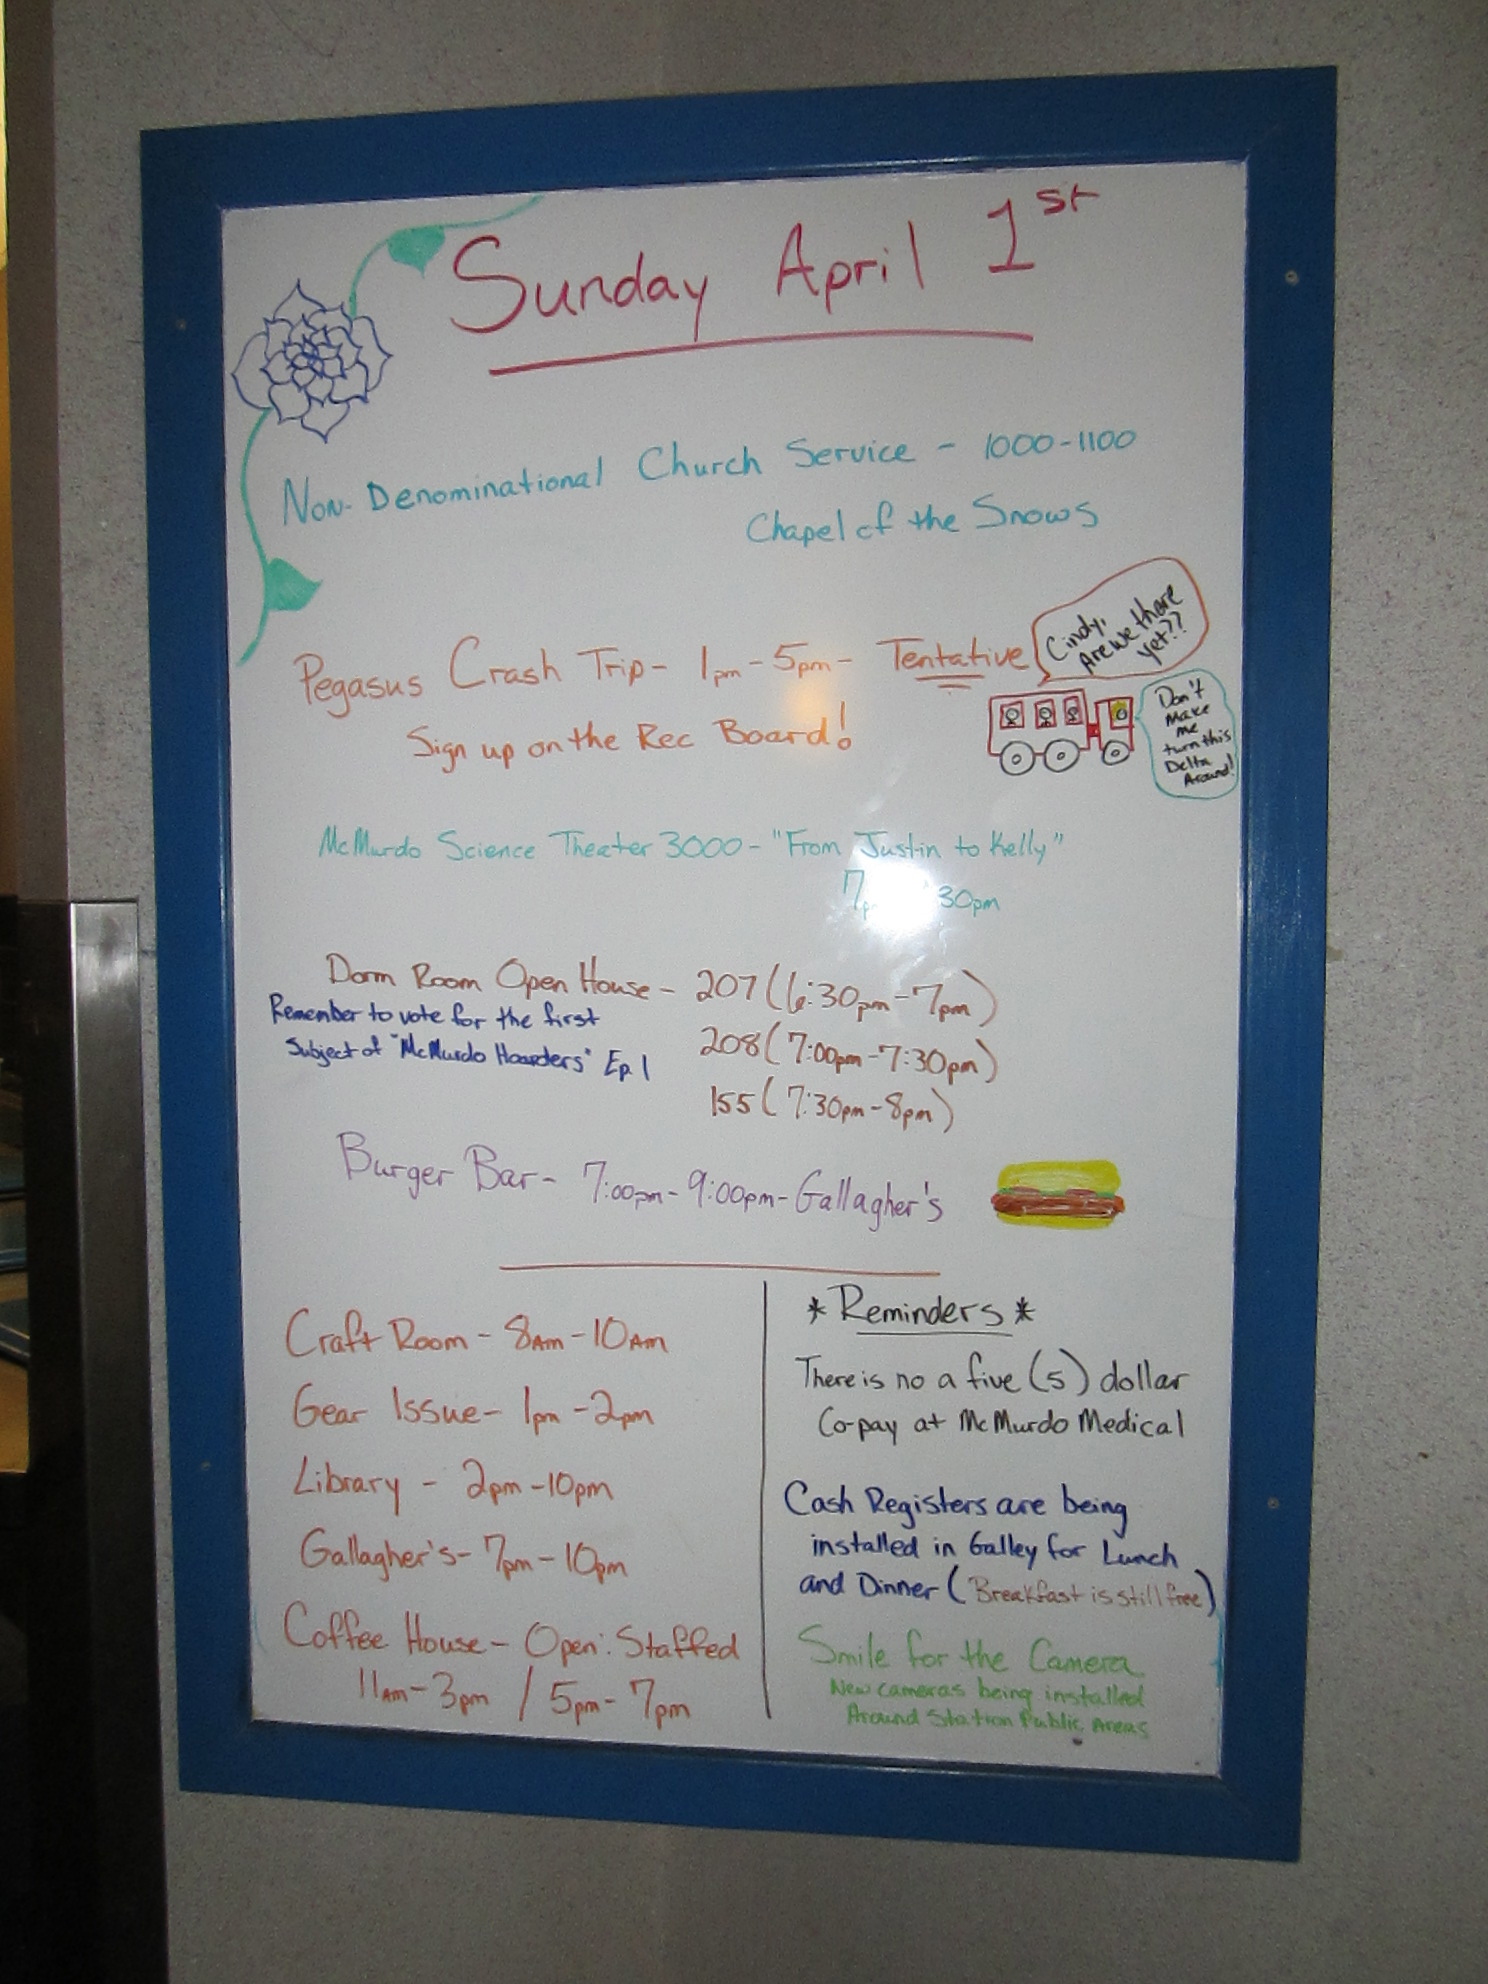 Sunday April 1st
Non-Denominational Church Service - 1000-1100
Chapel of the Snows
Pegasus Crash Trip - 1pm - 5pm - Tentative
Sign up on the Rec Board!
Cindy,
Are we there
yet??
Don't
make
me
turn this
Delta
Around!
McMurdo Science Theater 3000 - "From Justin to Kelly"
7 30pm
Dorm Room Open House - 207 (6:30pm-7pm)
Remember to vote for the first
Subject of "McMurdo Hoarders" Ep. 1
208 (7:00pm-7:30pm)
155 (7:30pm-8pm)
Burger Bar - 7:00pm - 9:00pm - Gallagher's
Craft Room - 8Am - 10Am
Gear Issue - 1pm - 2pm
Library - 2pm - 10pm
Gallagher's - 7pm - 10pm
Coffee House - Open: Staffed
11Am - 3pm / 5pm - 7pm
* Reminders *
There is no a five (5) dollar
Co-pay at McMurdo Medical
Cash Registers are being
installed in Galley for Lunch
and Dinner (Breakfast is still free)
Smile for the Camera
New cameras being installed
Around Station Public Areas